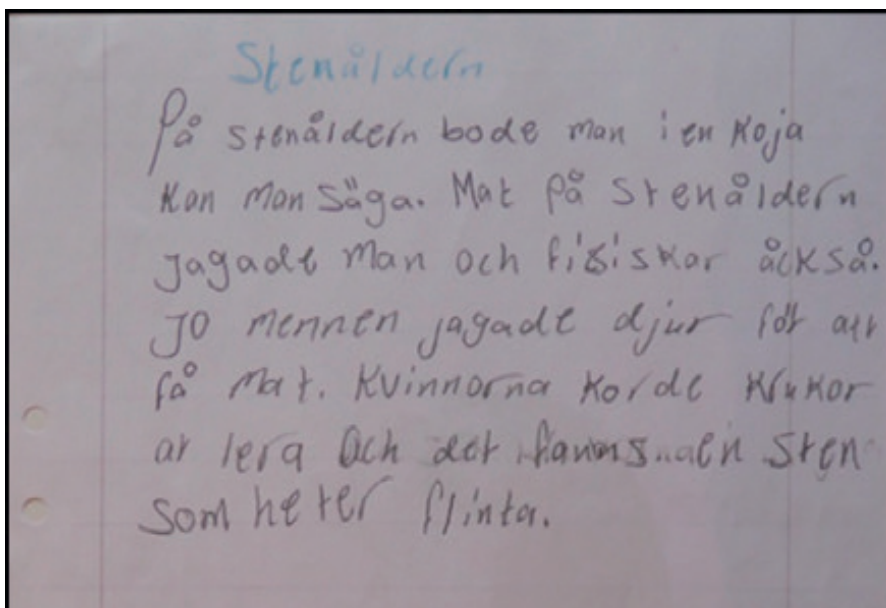 Stenåldern
På stenåldern bode man i en koja
kan man säga. Mat på stenåldern
jagade man och fisiskar åckså.
JO mennen jagade djur för att
få mat. Kvinnorna Korde krukor
av lera Och det fanns en sten
som heter flinta.